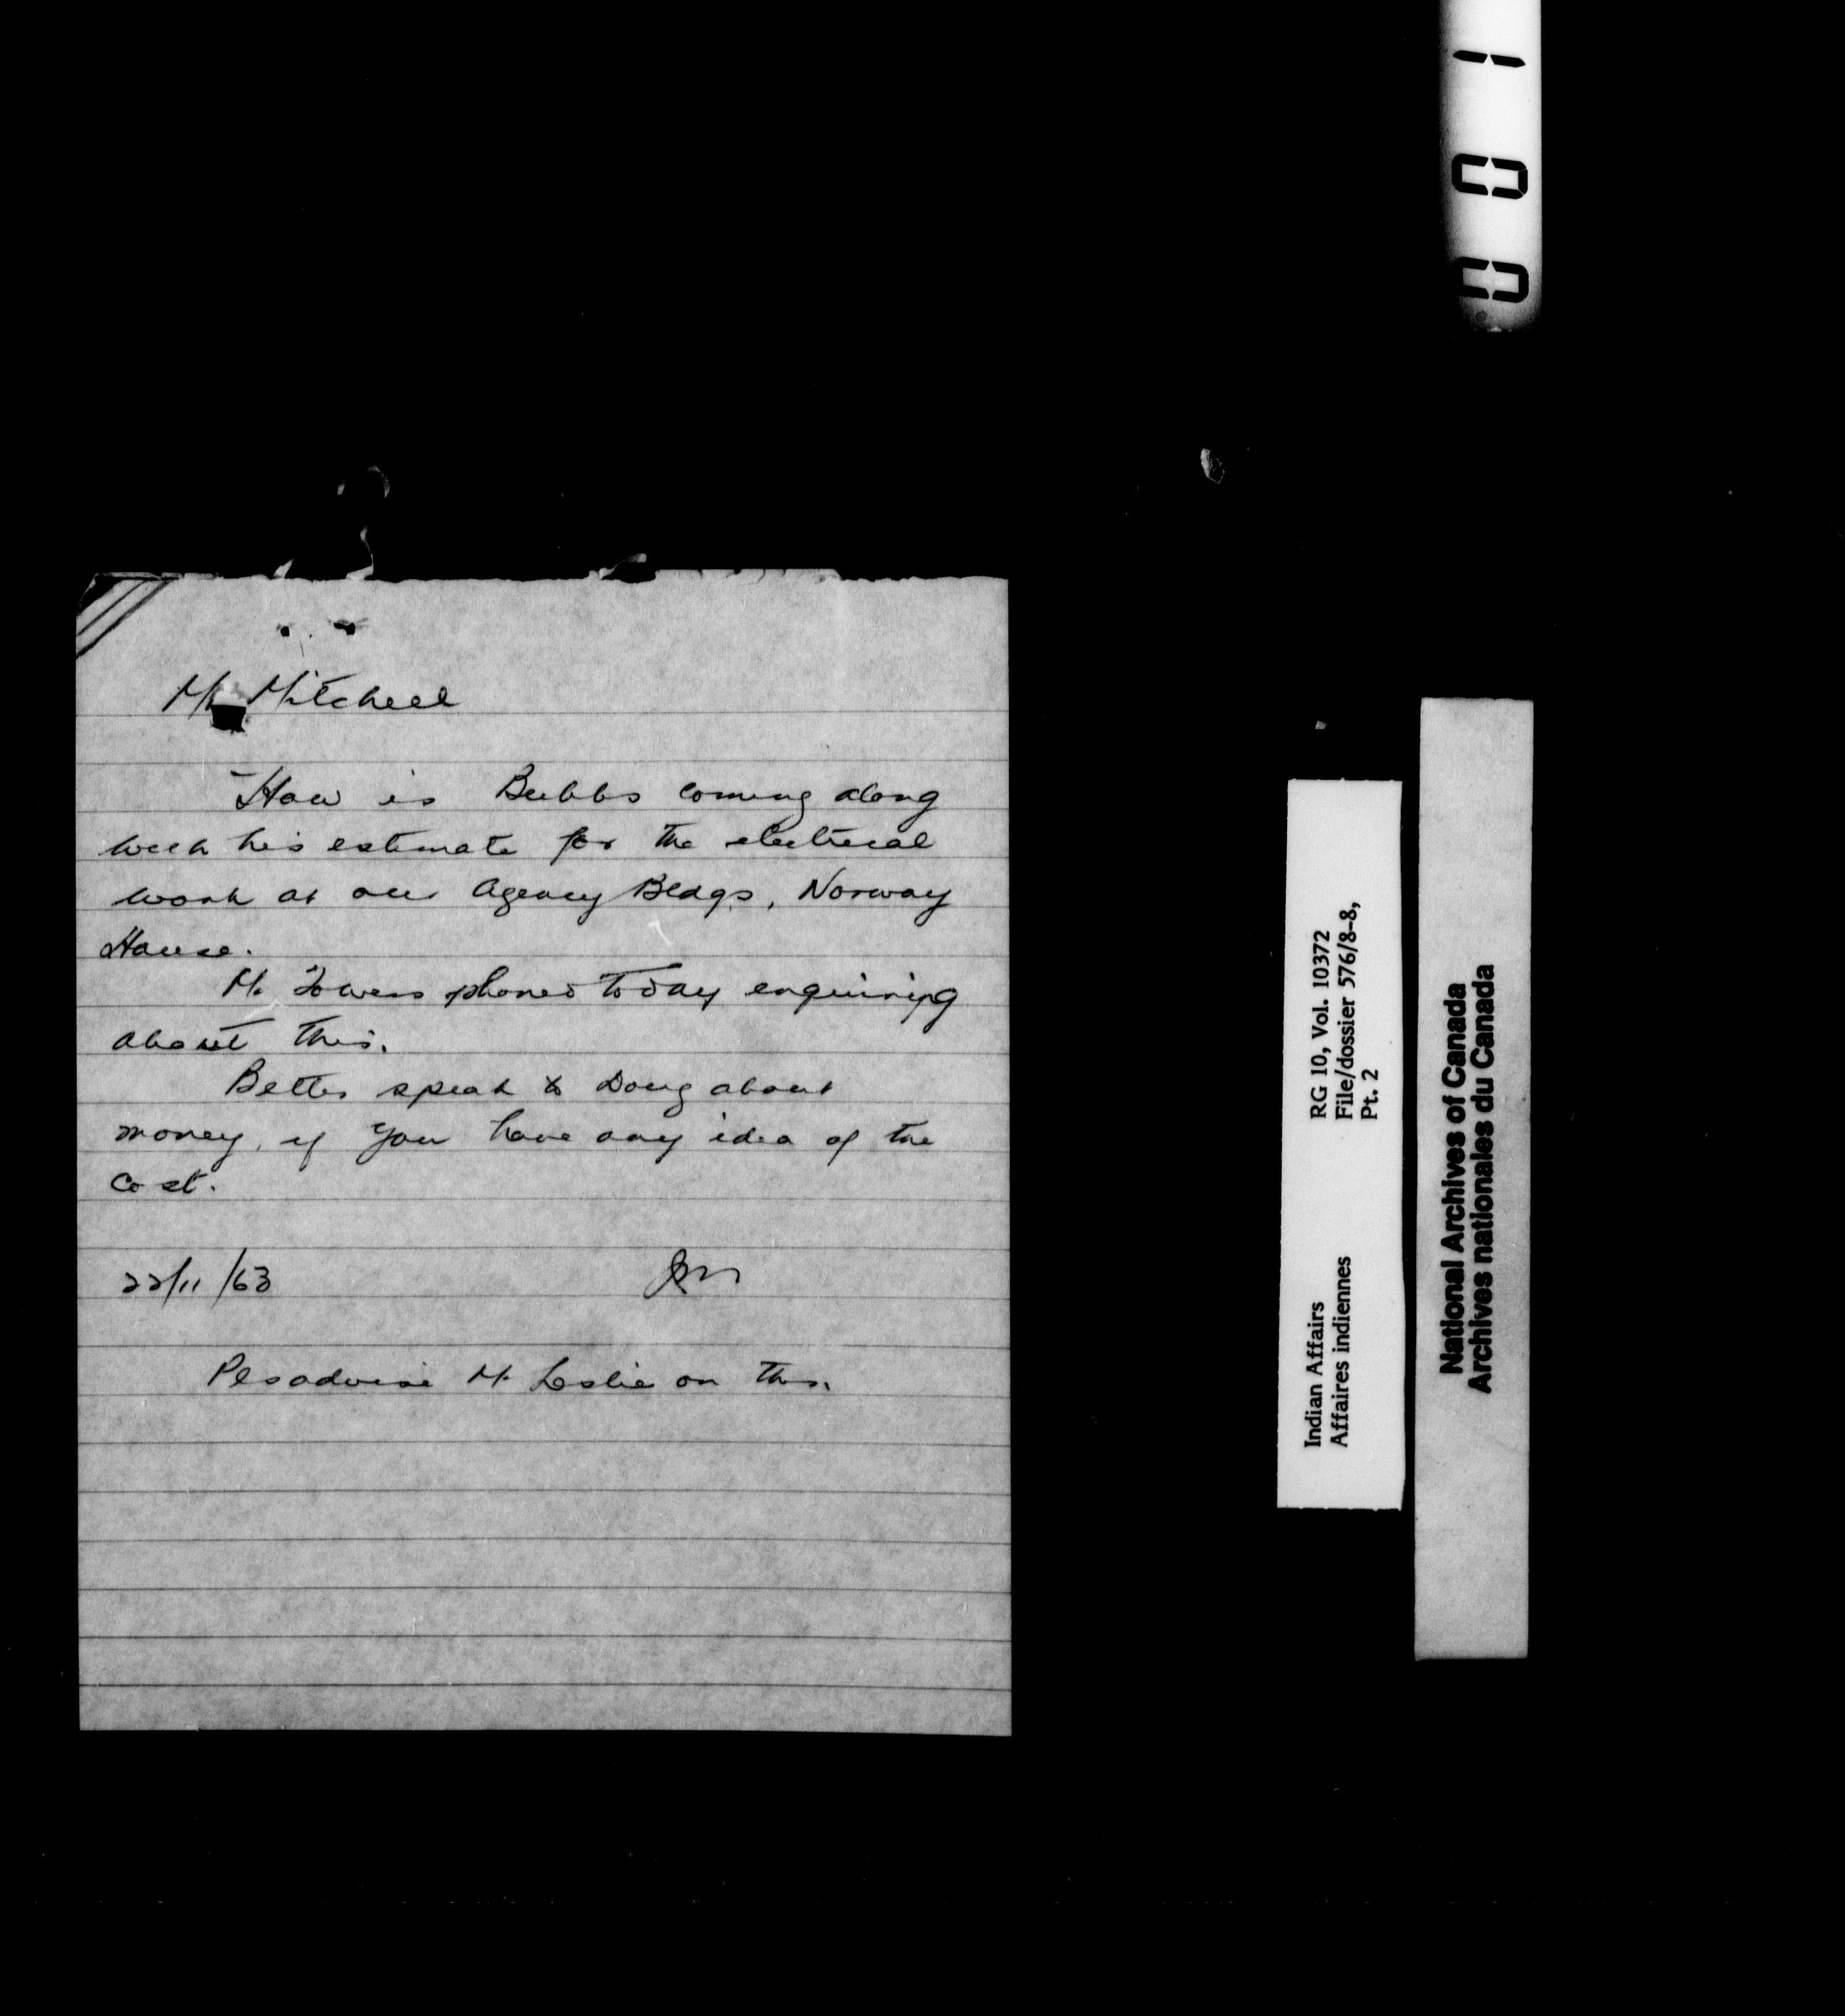 Mr Mitchell
How is Bubbs coming along
with his estimate for the electrical
work at our Agency Bldgs, Norway
House.
Mr. Towers phoned today enquiring
about this.
Better speak to Doug about
money, if you have any idea of the
cost.
22/11/63
Pls advise Mr. Leslie on this.
Indian Affairs
Affaires indiennes
RG 10, Vol. 10372
File/dossier 576/8-8,
Pt. 2
National Archives of Canada
Archives nationales du Canada
001